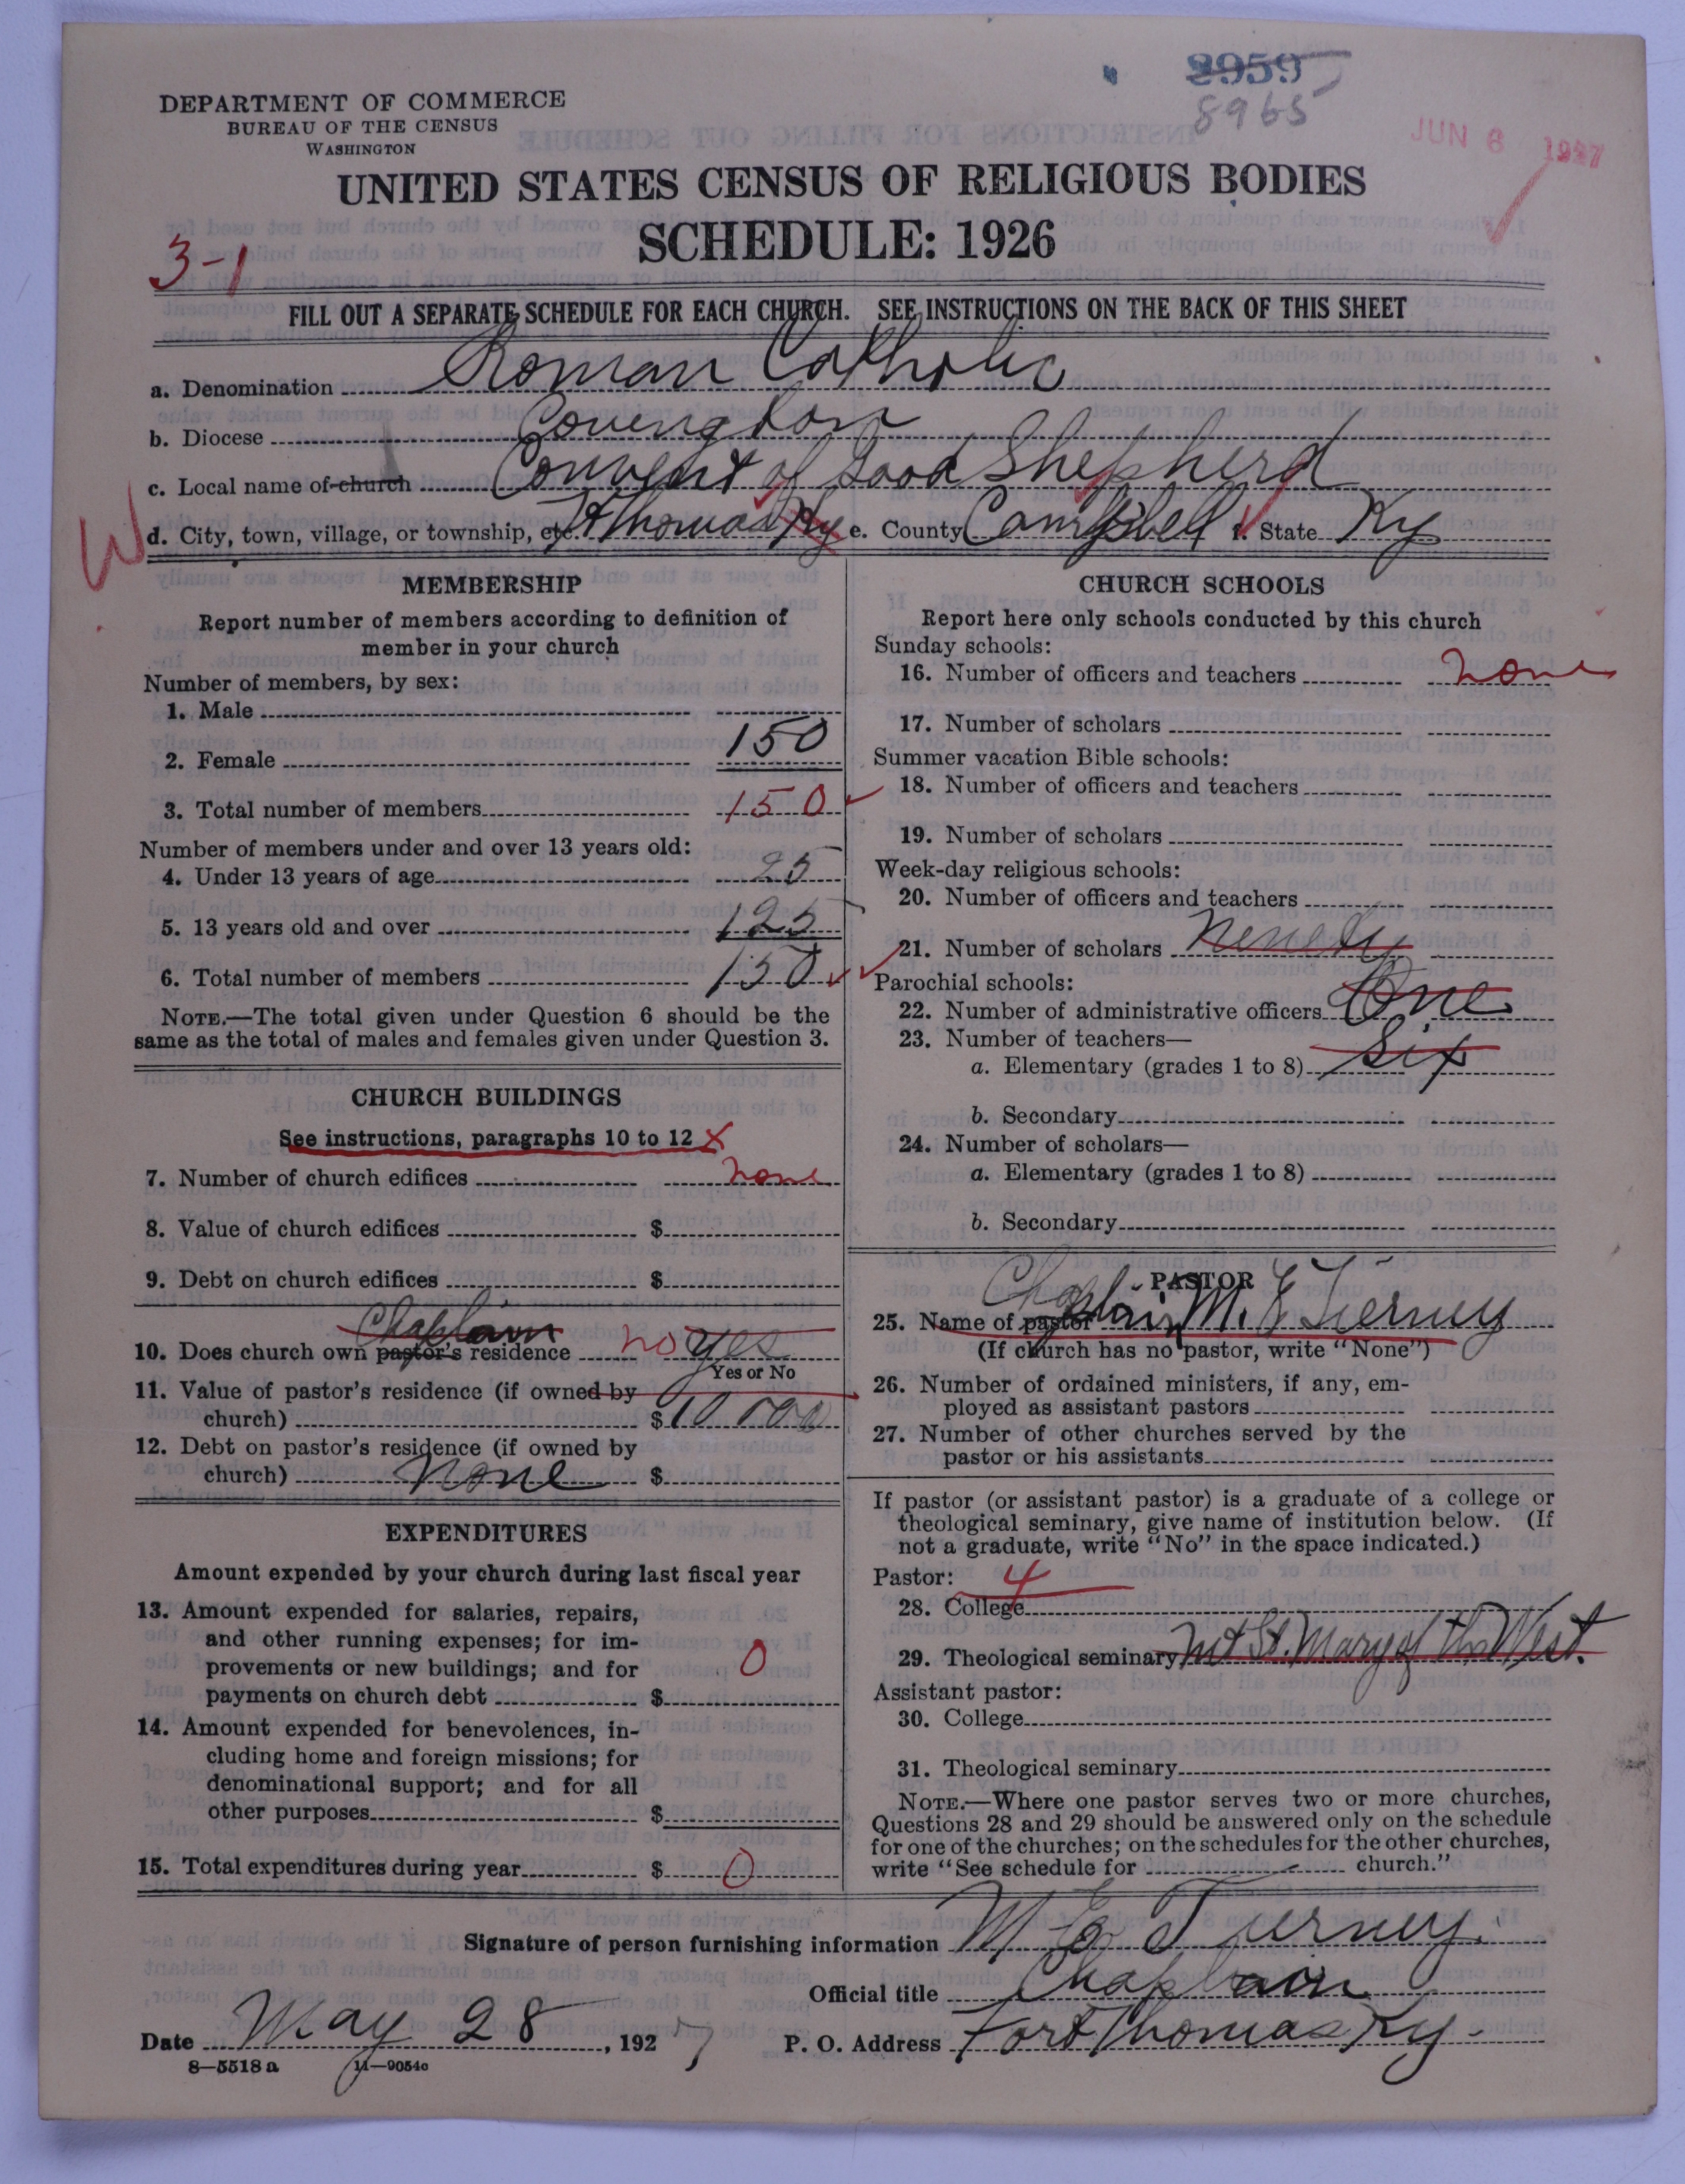 8959
8965
JUN 6 1927
DEPARTMENT OF COMMERCE
BUREAU OF THE CENSUS
WASHINGTON
UNITED STATES CENSUS OF RELIGIOUS BODIES
SCHEDULE: 1926
3-1
FILL OUT A SEPARATE SCHEDULE FOR EACH CHURCH. SEE INSTRUCTIONS ON THE BACK OF THIS SHEET
a. Denomination Roman Catholic
b. Diocese Covington
c. Local name of church Convent of Good Shepherd
W d. City, town, village, or township, etc. Ft Thomas Ky e. County Campbell f. State Ky
MEMBERSHIP
Report number of members according to definition of
member in your church
Number of members, by sex:
1. Male
2. Female 150
3. Total number of members 150
Number of members under and over 13 years old:
4. Under 13 years of age 25
5. 13 years old and over 125
6. Total number of members 150
NOTE.—The total given under Question 6 should be the
same as the total of males and females given under Question 3.
CHURCH BUILDINGS
See instructions, paragraphs 10 to 12 X
7. Number of church edifices none
8. Value of church edifices $
9. Debt on church edifices $
Chaplain
10. Does church own pastor's residence no yes
Yes or No
11. Value of pastor's residence (if owned by
church) $10 000
12. Debt on pastor's residence (if owned by
church) None $
EXPENDITURES
Amount expended by your church during last fiscal year
13. Amount expended for salaries, repairs,
and other running expenses; for im-
provements or new buildings; and for
payments on church debt $ 0
14. Amount expended for benevolences, in-
cluding home and foreign missions; for
denominational support; and for all
other purposes $
15. Total expenditures during year $ 0
CHURCH SCHOOLS
Report here only schools conducted by this church
Sunday schools:
16. Number of officers and teachers none
17. Number of scholars
Summer vacation Bible schools:
18. Number of officers and teachers
19. Number of scholars
Week-day religious schools:
20. Number of officers and teachers
21. Number of scholars
Parochial schools:
22. Number of administrative officers One
23. Number of teachers—
a. Elementary (grades 1 to 8) Six
b. Secondary
24. Number of scholars—
a. Elementary (grades 1 to 8)
b. Secondary
PASTOR
25. Name of pastor Chaplain M. E Tierney
(If church has no pastor, write "None")
26. Number of ordained ministers, if any, em-
ployed as assistant pastors
27. Number of other churches served by the
pastor or his assistants
If pastor (or assistant pastor) is a graduate of a college or
theological seminary, give name of institution below. (If
not a graduate, write "No" in the space indicated.)
Pastor: 4
28. College
29. Theological seminary Mt St. Mary of the West.
Assistant pastor:
30. College
31. Theological seminary
NOTE.—Where one pastor serves two or more churches,
Questions 28 and 29 should be answered only on the schedule
for one of the churches; on the schedules for the other churches,
write "See schedule for church."
Signature of person furnishing information M E Tierney.
Official title Chaplain
Date May 28, 1927 P. O. Address Fort Thomas Ky.
8—5518 a 11—9054c